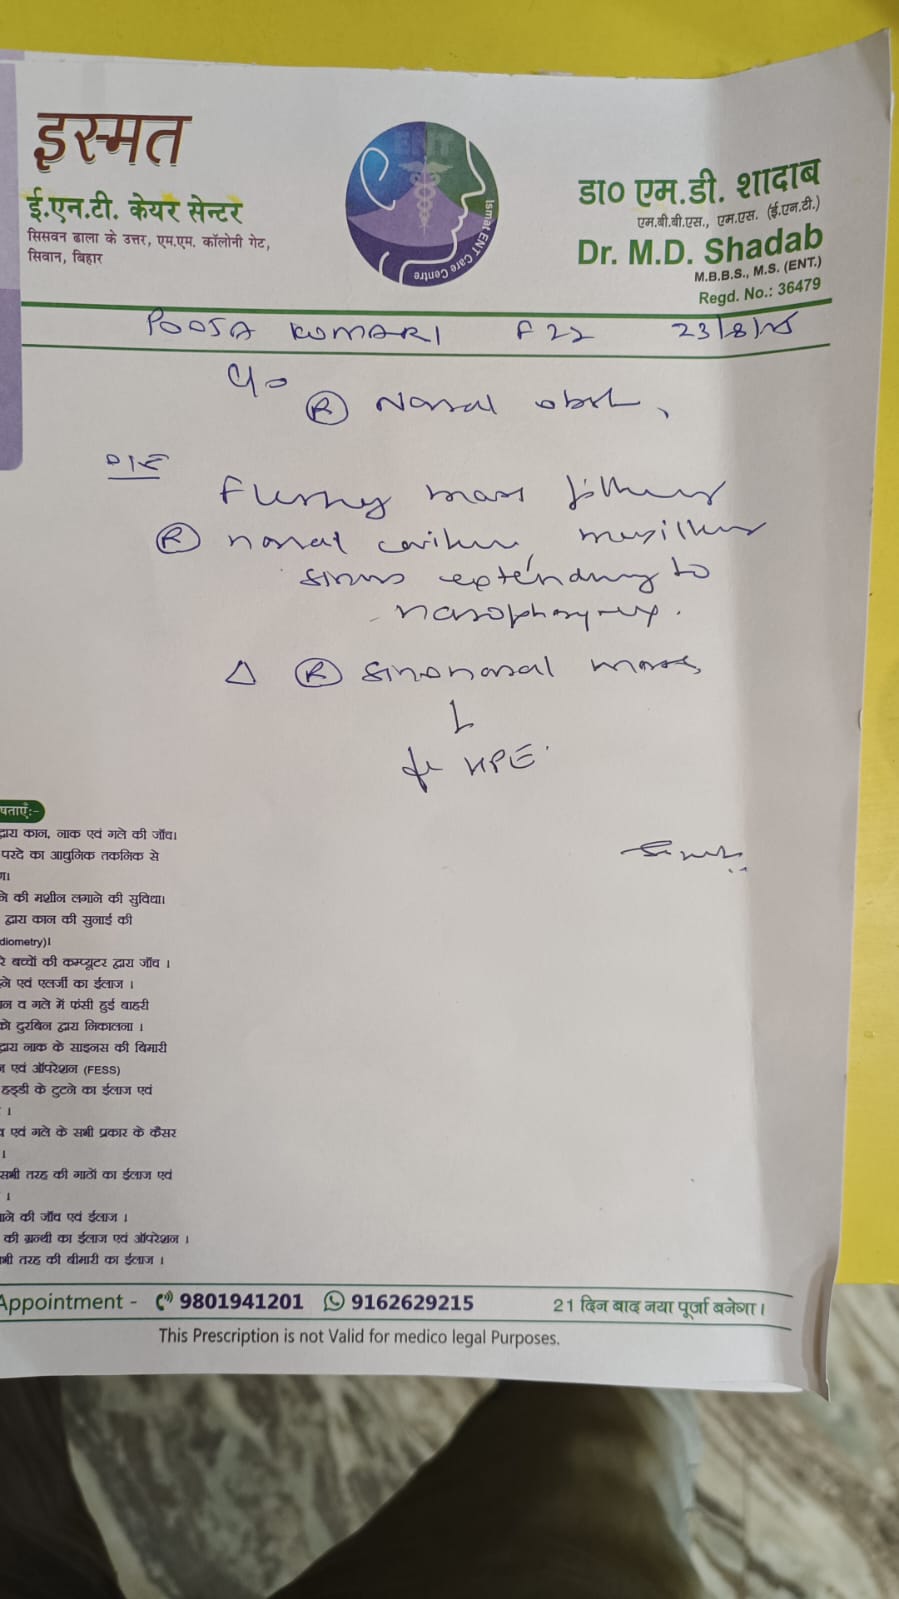 इस्मत
ई.एन.टी. केयर सेन्टर
सिसवन ढाला के उत्तर, एम.एम. कॉलोनी गेट,
सिवान, बिहार
ENT
Ismat ENT Care Centre
डा० एम.डी. शादाब
एम.बी.बी.एस., एम.एस. (ई.एन.टी.)
Dr. M.D. Shadab
M.B.B.S., M.S. (ENT.)
Regd. No.: 36479
POOJA KUMARI F 22 23/8/25
C/o
(R) Nasal obst.
O/E
Fleshy mass filling
(R) nasal cavity, maxillary
sinus extending to
nasopharynx.
Δ (R) sinonasal mass
for HPE.
षताएँ:-
द्वारा कान, नाक एवं गले की जाँच।
परदे का आधुनिक तकनिक से
ने की मशीन लगाने की सुविधा।
द्वारा कान की सुनाई की
diometry)।
रे बच्चों की कम्प्यूटर द्वारा जाँच ।
ने एवं एलर्जी का ईलाज ।
न व गले में फंसी हुई बाहरी
को दुरबिन द्वारा निकालना ।
द्वारा नाक के साइनस की बिमारी
एवं ऑपरेशन (FESS)
हड्डी के टुटने का ईलाज एवं
एवं गले के सभी प्रकार के कैंसर
सभी तरह की गाठों का ईलाज एवं
ाने की जाँच एवं ईलाज ।
की ग्रन्थी का ईलाज एवं ऑपरेशन ।
भी तरह की बीमारी का ईलाज ।
Appointment - 9801941201 9162629215 21 दिन बाद नया पूर्जा बनेगा ।
This Prescription is not Valid for medico legal Purposes.